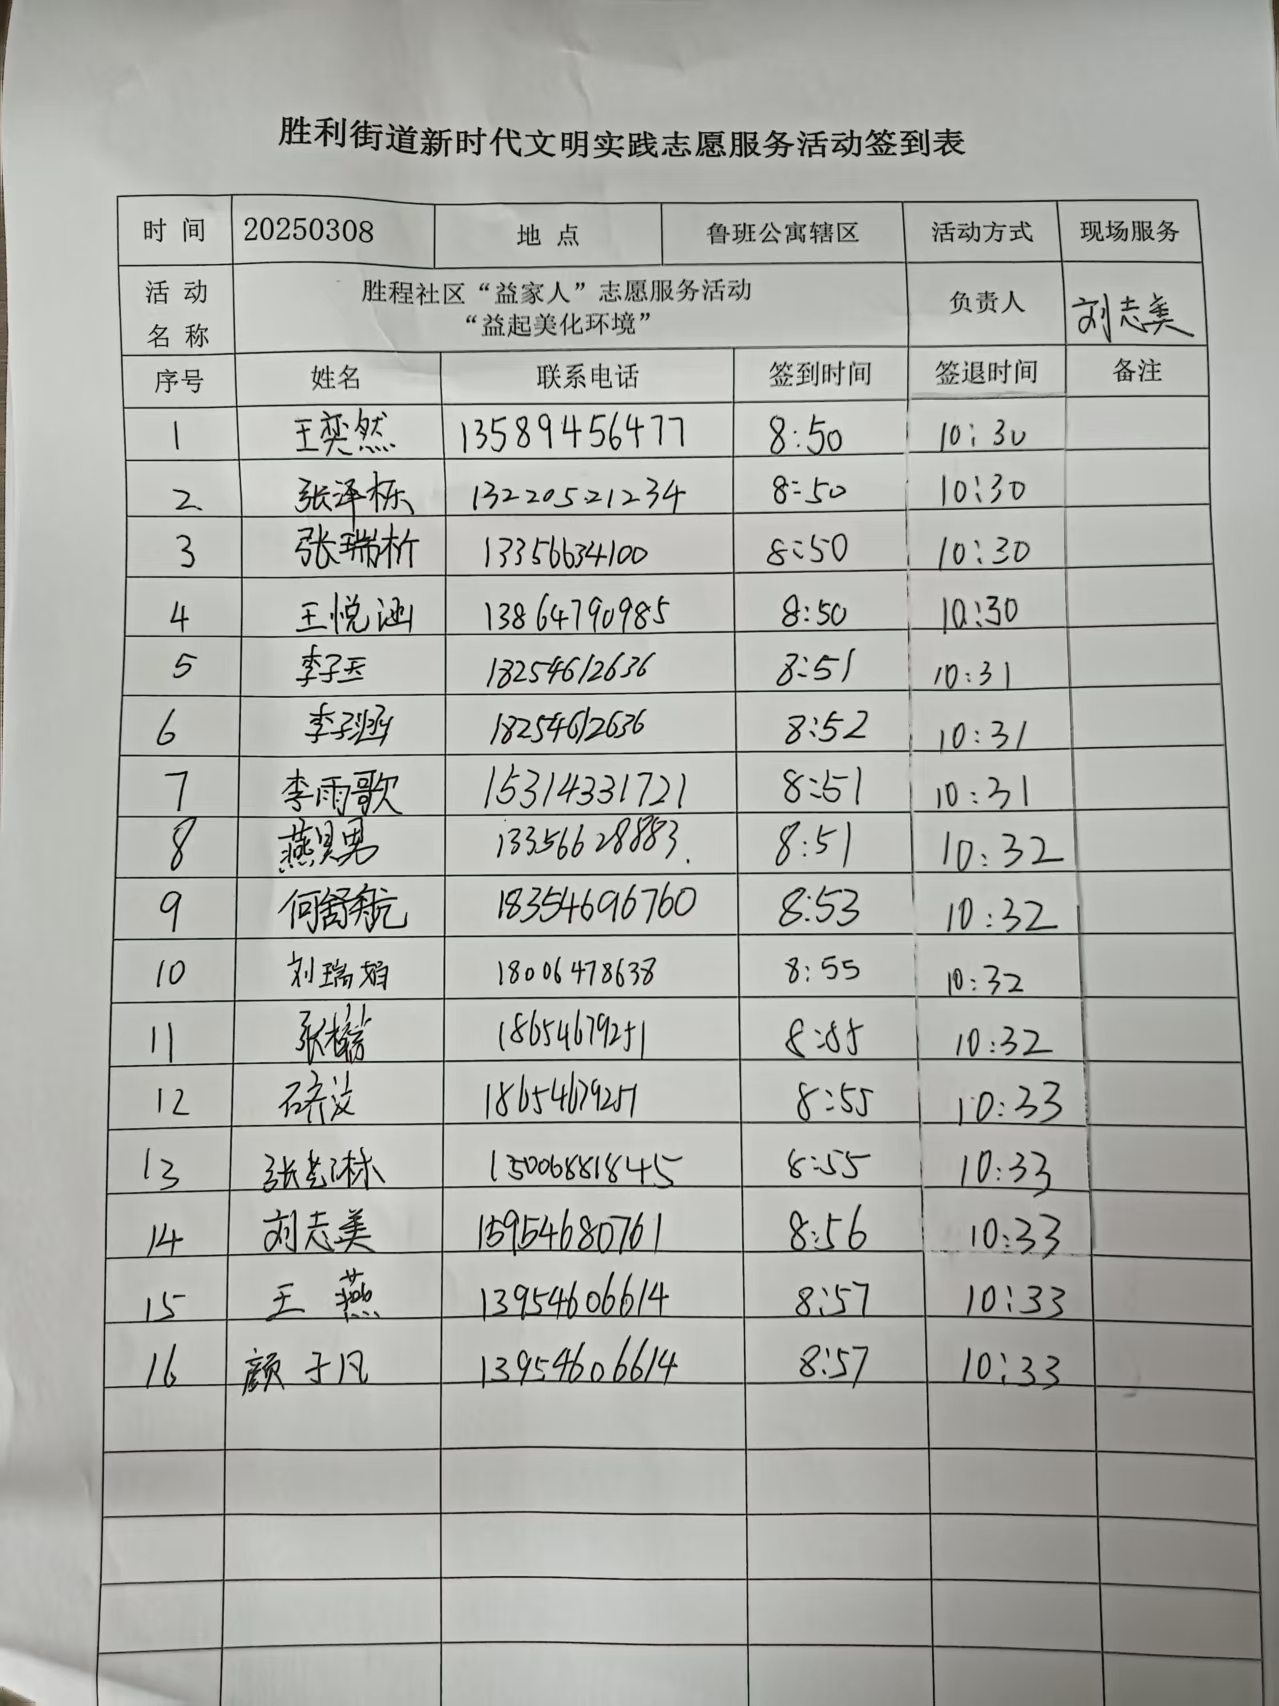 胜利街道新时代文明实践志愿服务活动签到表
时 间 20250308 地 点 鲁班公寓辖区 活动方式 现场服务
活 动 名 称 胜程社区“益家人”志愿服务活动 “益起美化环境” 负责人 刘志美
序号 姓名 联系电话 签到时间 签退时间 备注
1 王奕然 13589456477 8:50 10:30
2 张泽栎 13220521234 8:50 10:30
3 张瑞析 13356634100 8:50 10:30
4 王悦涵 13864790985 8:50 10:30
5 李子玉 18254612636 8:51 10:31
6 李子涵 18254612636 8:52 10:31
7 李雨歌 15314331721 8:51 10:31
8 燕昊男 13356628883. 8:51 10:32
9 何舒航 18354696760 8:53 10:32
10 刘瑞 18006478638 8:55 10:32
11 张 18654679251 8:55 10:32
12 18654679251 8:55 10:33
13 张 15006881845 8:55 10:33
14 刘志美 15954680761 8:56 10:33
15 王 燕 13954606614 8:57 10:33
16 颜于凡 13954606614 8:57 10:33